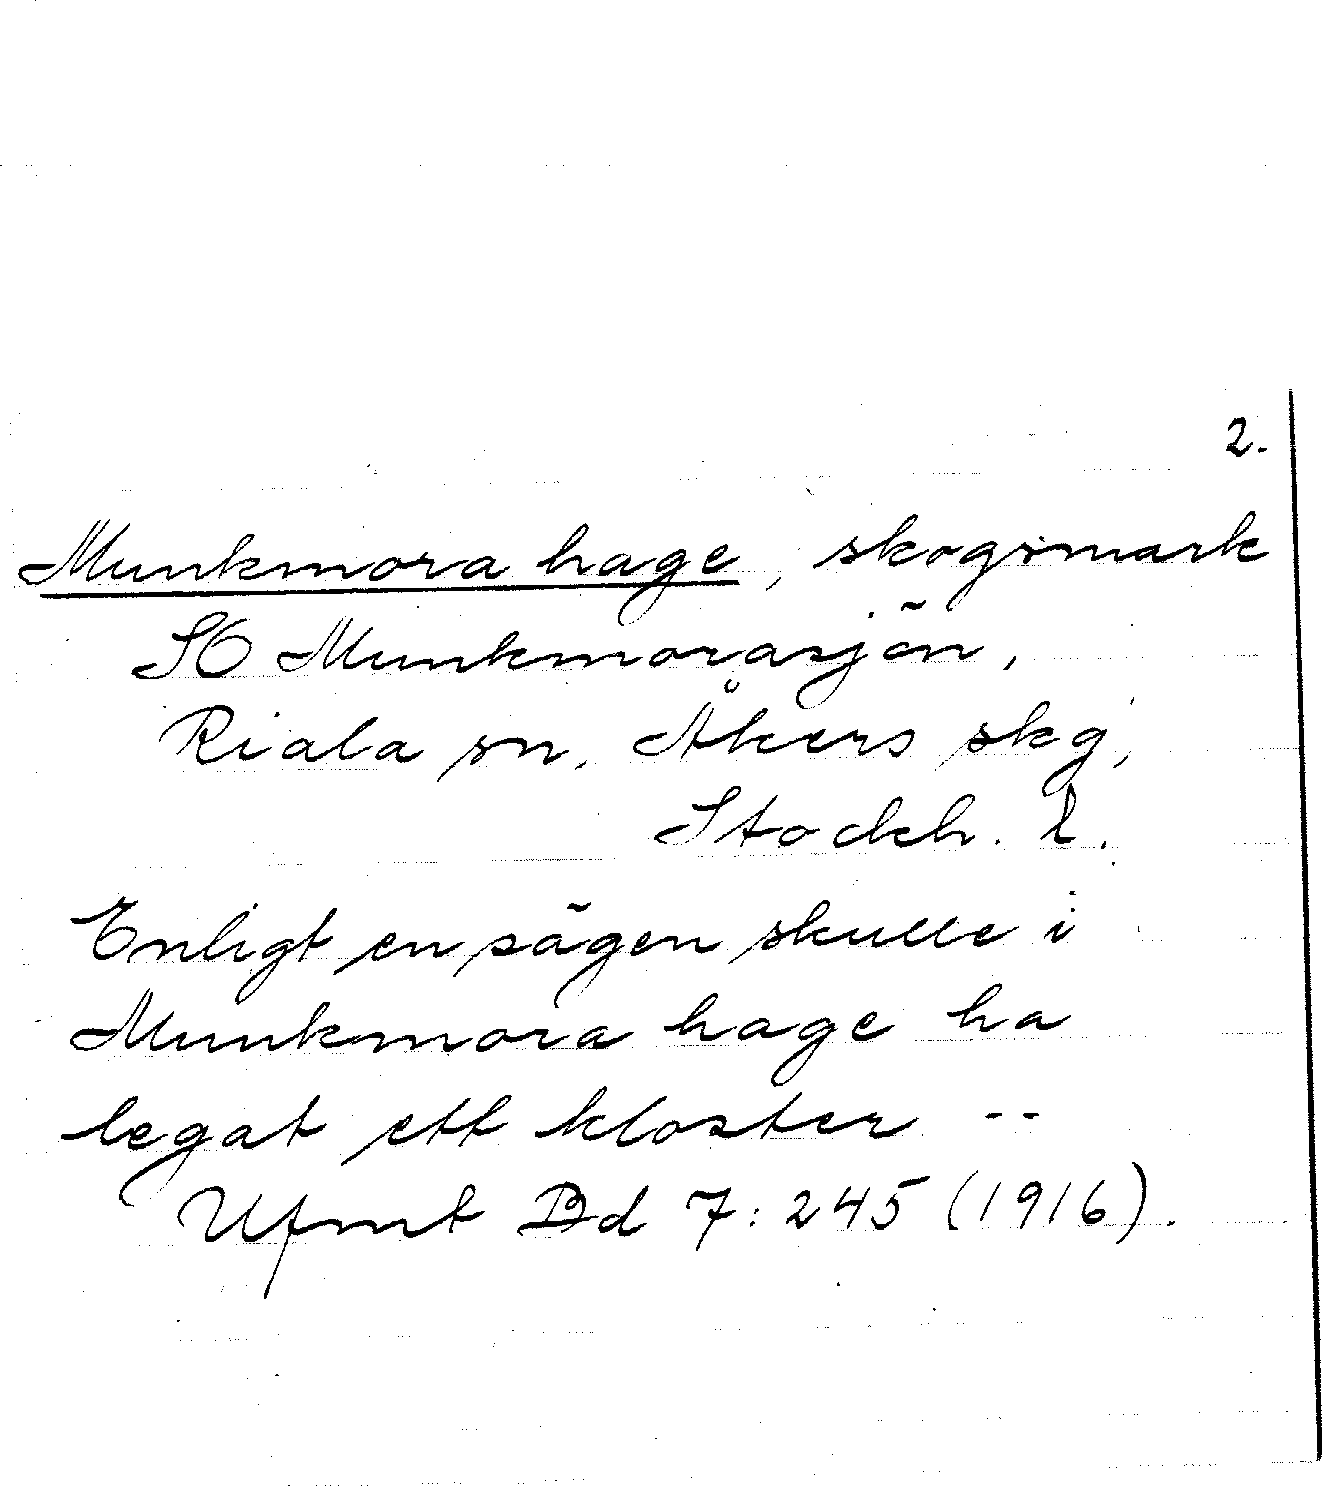 2.
Munkmora hage, skogsmark
SO Munkmorasjön,
Riala sn, Åkers skg,
Stockh. l.
Enligt en sägen skulle i
Munkmora hage ha
legat ett kloster --
Ufmt Bd 7:245 (1916).